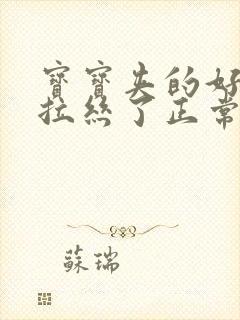 寶寶夹的好
拉絲了正常
蘇瑞